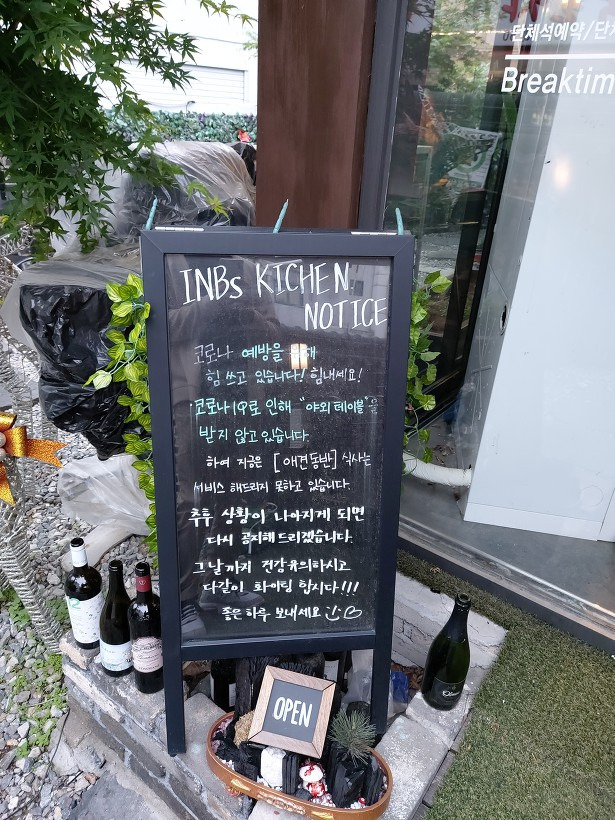 단체석예약/단체
Breaktim
INBs KICHEN
NOTICE
코로나 예방을 위해
힘 쓰고 있습니다! 힘내세요!
코로나19로 인해 "야외 테이블"을
받지 않고 있습니다.
하여 지금은 [애견동반] 식사는
서비스 해드리지 못하고 있습니다.
추후 상황이 나아지게 되면
다시 공지해드리겠습니다.
그날까지 건강유의하시고
다같이 화이팅 합시다!!!
좋은하루 보내세요
OPEN